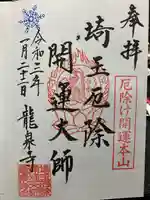 奉拝
厄除け開運本山
埼玉厄除
開運大師
令和三年
一月二十二日
龍泉寺